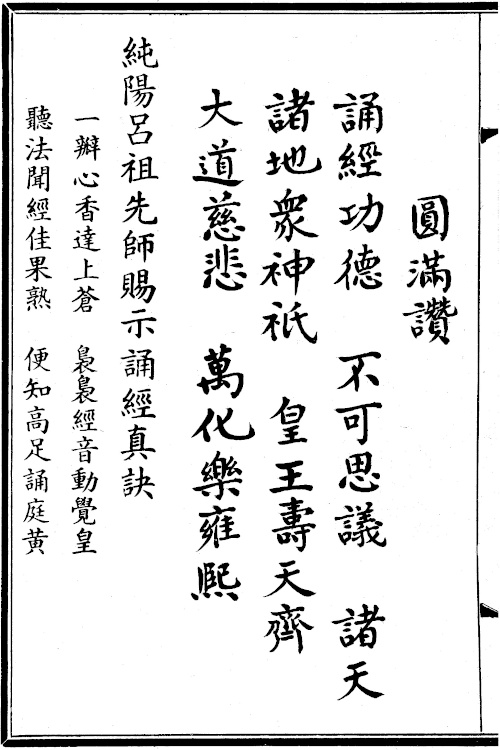 圓滿讚
誦經功德　不可思議　諸天
諸地衆神祇　皇王壽天齊
大道慈悲　萬化樂雍熙
純陽呂祖先師賜示誦經真訣
一瓣心香達上蒼　裊裊經音動覺皇
聽法聞經佳果熟　便知高足誦庭黃